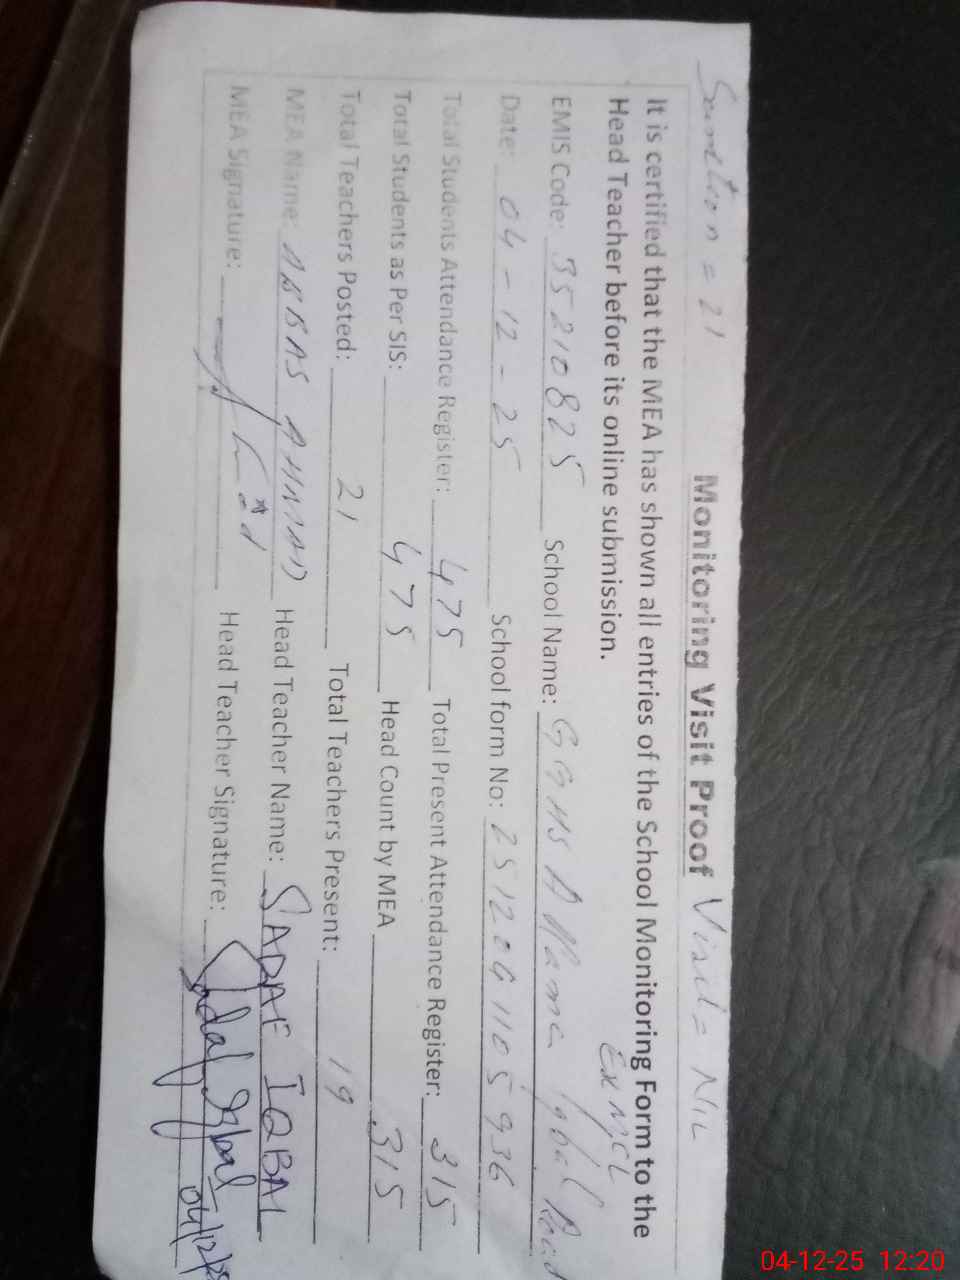 Sanction = 21 Monitoring Visit Proof Visit = NIL
It is certified that the MEA has shown all entries of the School Monitoring Form to the
Head Teacher before its online submission.
EMIS Code: 35210825 School Name: GGHS Allama Iqbal Road
Date: 04-12-25 School form No: 2512041105936
Total Students Attendance Register: 475 Total Present Attendance Register: 315
Total Students as Per SIS: 475 Head Count by MEA 315
Total Teachers Posted: 21 Total Teachers Present: 19
MEA Name: ABBAS AHMAD Head Teacher Name: SADAF IQBAL
MEA Signature: Head Teacher Signature: Sadaf Iqbal
04/12/
04-12-25 12:20